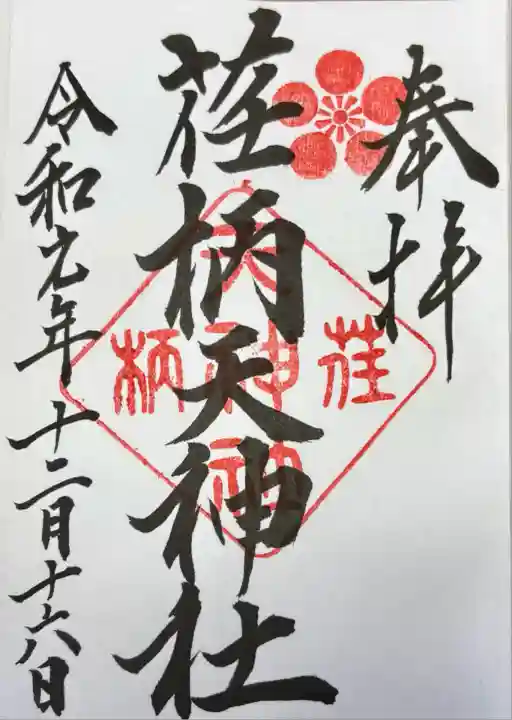 奉拝
荏柄天神社
令和元年十二月十六日
荏
天神社
柄